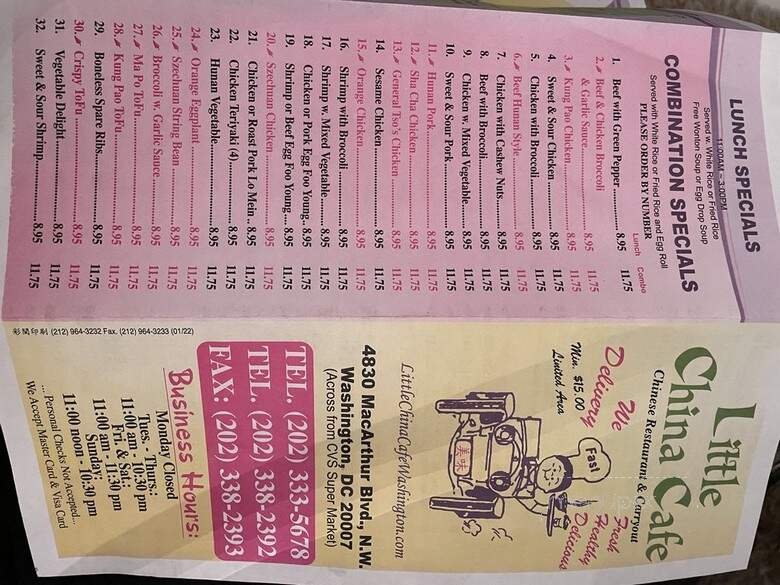 LUNCH SPECIALS
11:00AM - 3:00PM
Served w. White Rice or Fried Rice
Free Wonton Soup or Egg Drop Soup
COMBINATION SPECIALS
Served with White Rice or Fried Rice and Egg Roll
PLEASE ORDER BY NUMBER
Lunch Combo
1. Beef with Green Pepper..........8.95 11.75
2. Beef & Chicken Broccoli
& Garlic Sauce..........8.95 11.75
3. Kung Pao Chicken..........8.95 11.75
4. Sweet & Sour Chicken..........8.95 11.75
5. Chicken with Broccoli..........8.95 11.75
6. Beef Hunan Style..........8.95 11.75
7. Chicken with Cashew Nuts..........8.95 11.75
8. Beef with Broccoli..........8.95 11.75
9. Chicken w. Mixed Vegetable..........8.95 11.75
10. Sweet & Sour Pork..........8.95 11.75
11. Hunan Pork..........8.95 11.75
12. Sha Cha Chicken..........8.95 11.75
13. General Tso's Chicken..........8.95 11.75
14. Sesame Chicken..........8.95 11.75
15. Orange Chicken..........8.95 11.75
16. Shrimp with Broccoli..........8.95 11.75
17. Shrimp w. Mixed Vegetable..........8.95 11.75
18. Chicken or Pork Egg Foo Young..8.95 11.75
19. Shrimp or Beef Egg Foo Young...8.95 11.75
20. Szechuan Chicken..........8.95 11.75
21. Chicken or Roast Pork Lo Mein..8.95 11.75
22. Chicken Teriyaki (4)..........8.95 11.75
23. Hunan Vegetable..........8.95 11.75
24. Orange Eggplant..........8.95 11.75
25. Szechuan String Bean..........8.95 11.75
26. Broccoli w. Garlic Sauce..........8.95 11.75
27. Ma Po ToFu..........8.95 11.75
28. Kung Pao ToFu..........8.95 11.75
29. Boneless Spare Ribs..........8.95 11.75
30. Crispy ToFu..........8.95 11.75
31. Vegetable Delight..........8.95 11.75
32. Sweet & Sour Shrimp..........8.95 11.75
Little
China Cafe
Chinese Restaurant & Carryout
We
Delivery
Min. $15.00
Limited Area
Fresh
Healthy
Delicious
Fast
美味
LittleChinaCafeWashington.com
4830 MacArthur Blvd., N.W.
Washington, DC 20007
(Across from CVS Super Market)
TEL. (202) 333-5678
TEL. (202) 338-2392
FAX: (202) 338-2393
Business Hours:
Monday Closed
Tues. - Thurs.:
11:00 am - 10:30 pm
Fri. & Sat.:
11:00 am - 11:30 pm
Sunday:
11:00 noon - 10:30 pm
... Personal Checks Not Accepted...
We Accept Master Card & Visa Card
(212) 964-3232 Fax. (212) 964-3233 (01/22)